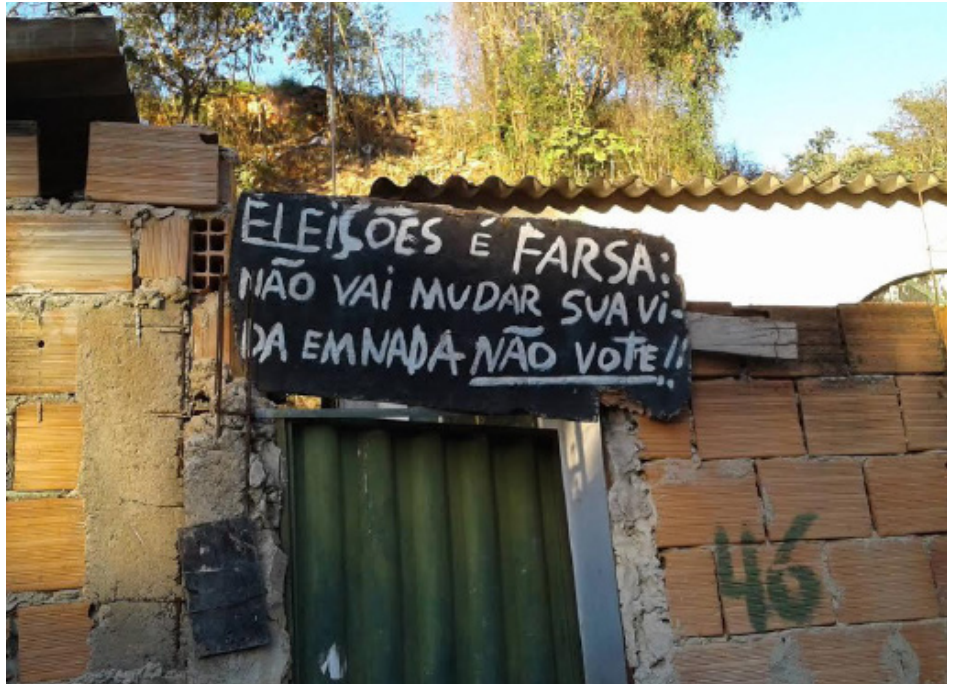 ELEIÇÕES É FARSA:
NÃO VAI MUDAR SUA VI-
DA EM NADA NÃO VOTE!!
46